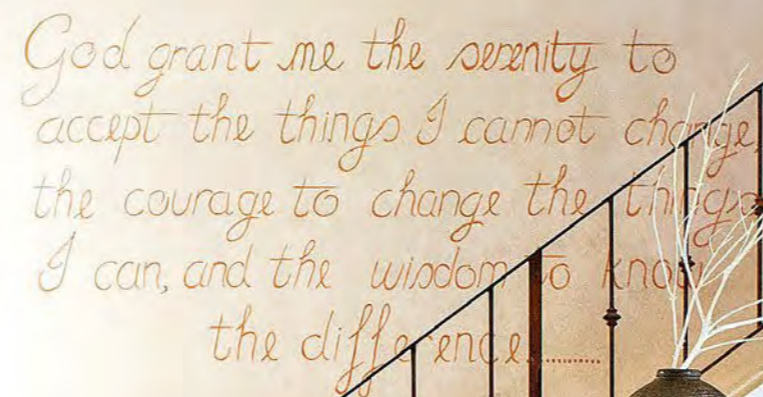 God grant me the serenity to
accept the things I cannot change,
the courage to change the things
I can, and the wisdom to know
the difference............